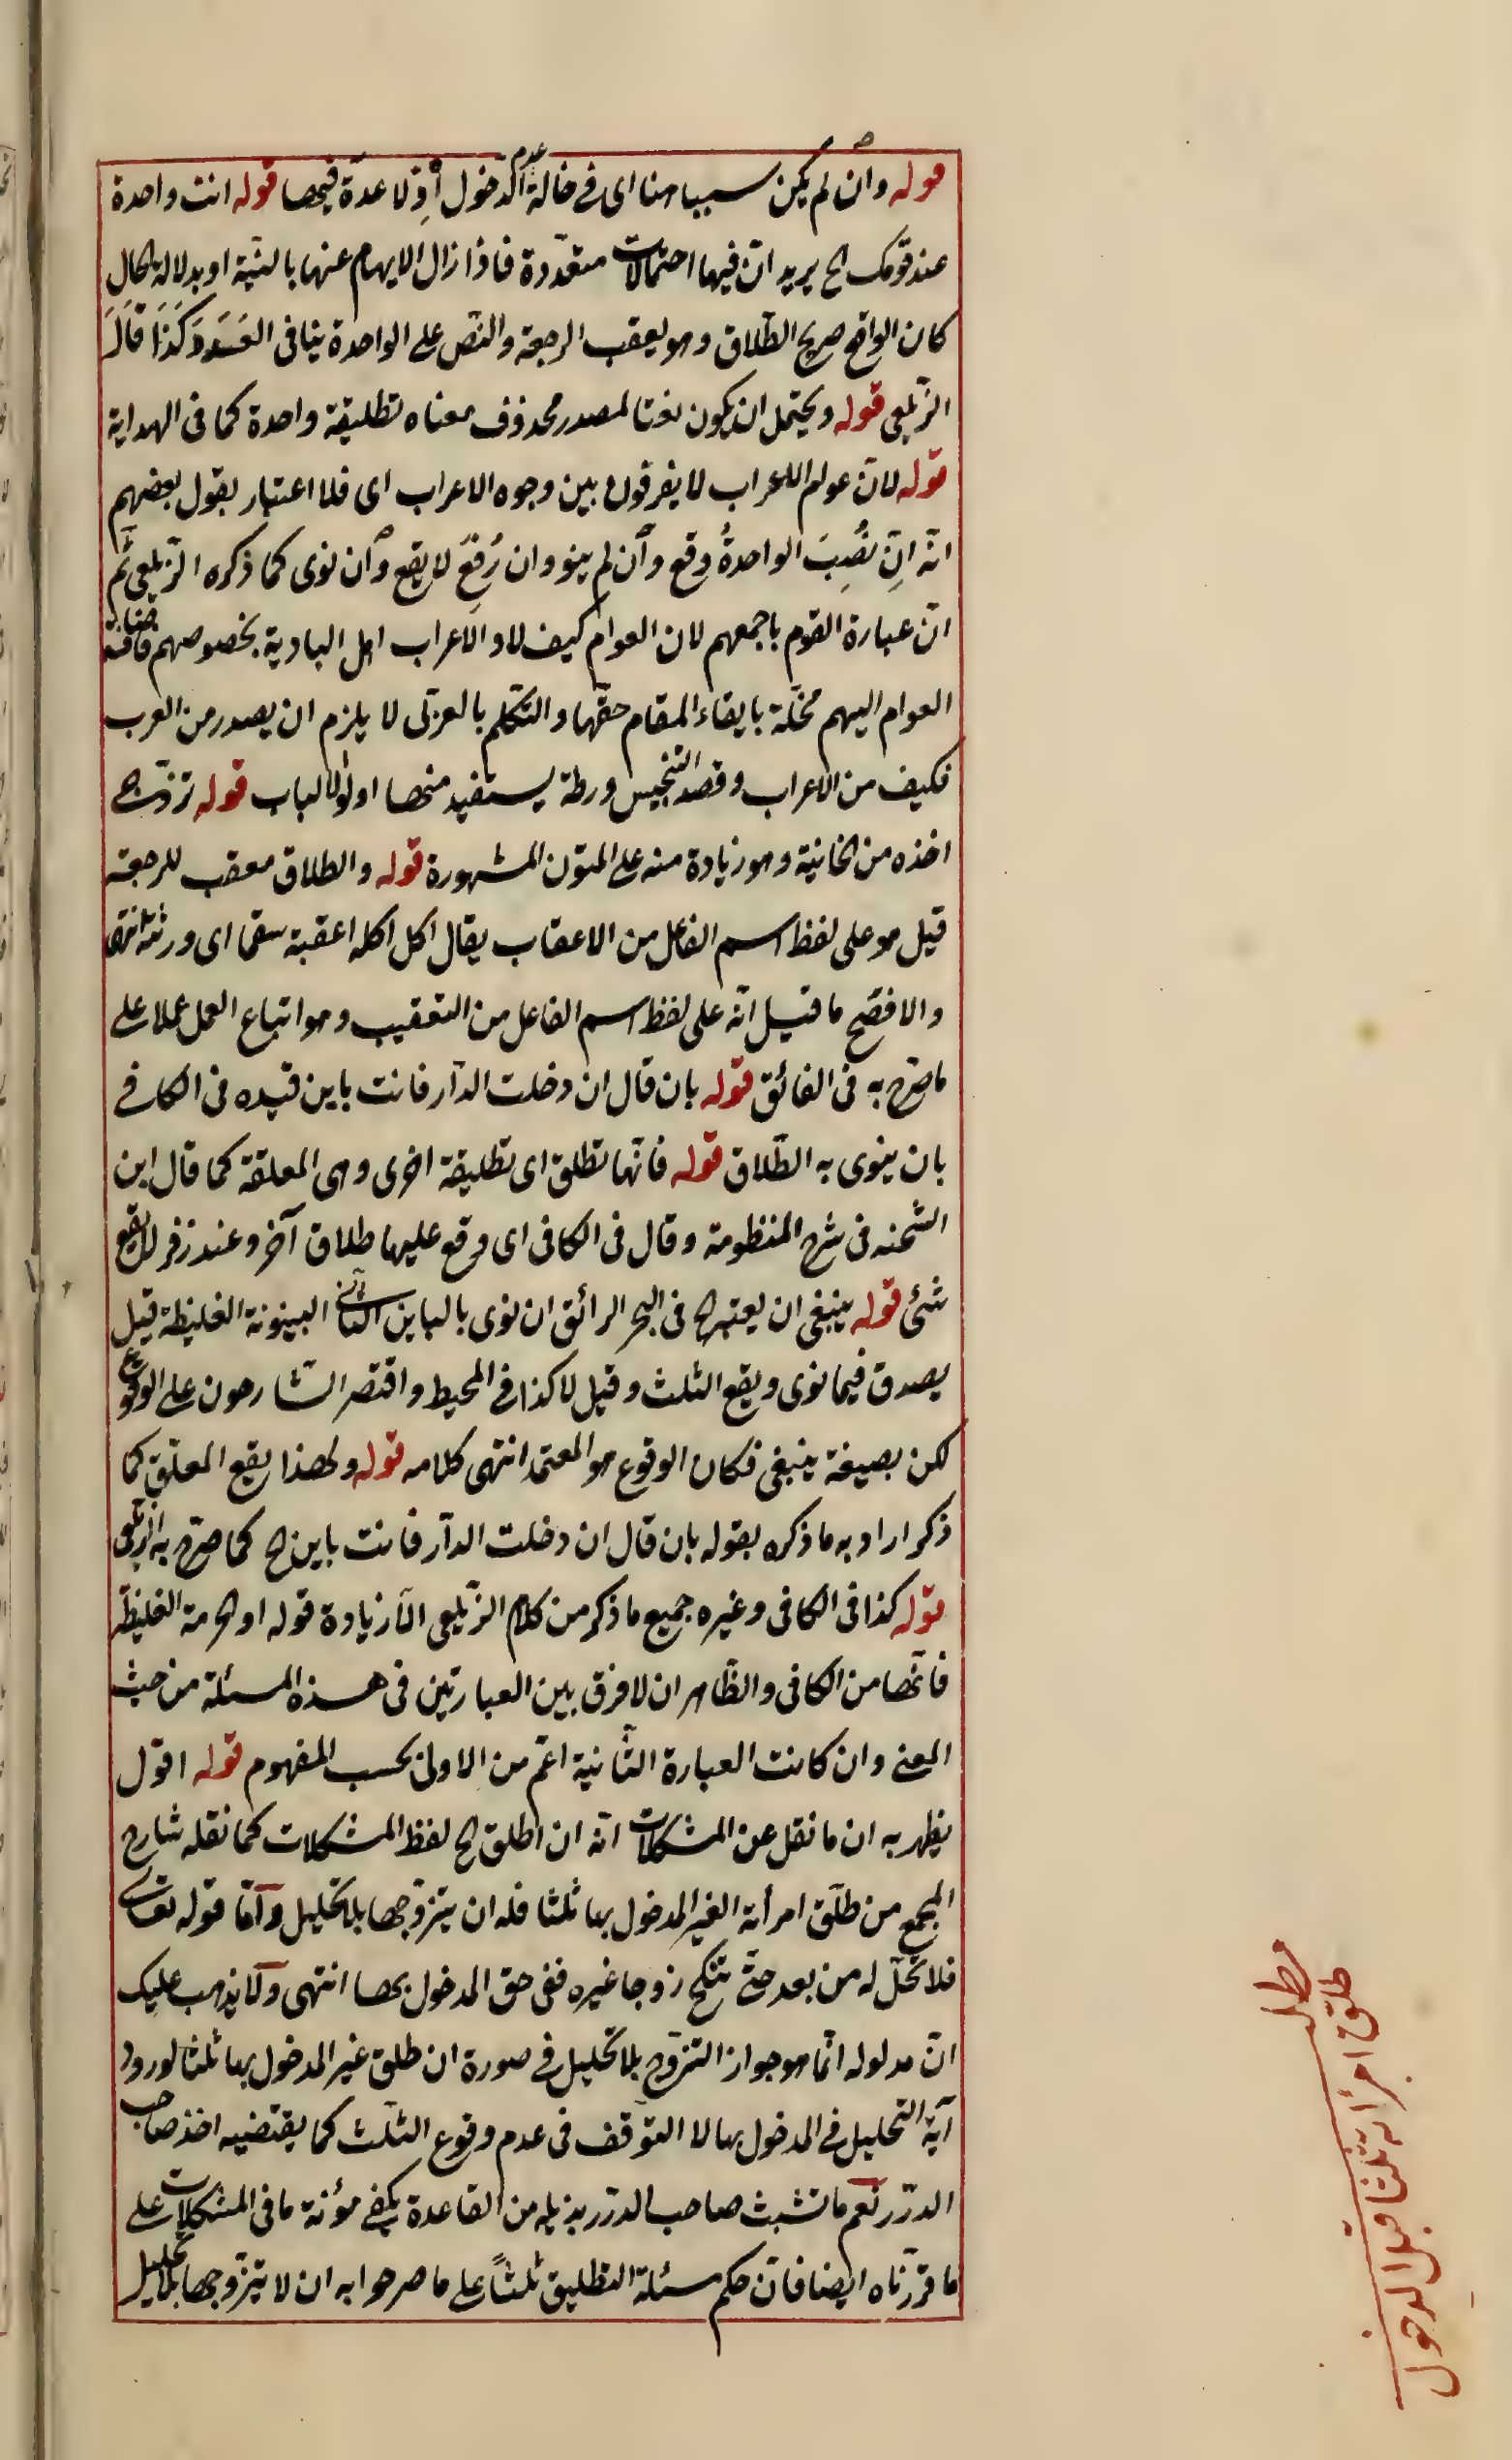 قوله وان لم يكن سببا هنا اى فى حالة عدم الدخول اذ لا عدة فيها قوله انت واحدة
عند قومك الخ يريد انّ فيها احتمالات متعدّدة فاذا زال الابهام عنها بالنيّة او بدلالة الحال
كان الواقع صريح الطّلاق وهو يعقب الرجعة والنّص على الواحدة ينافى العَدَدَ كَذَا قَالَ
الزّيلعى قوله ويحتمل ان يكون نعتا لمصدر محذوف معناه تطليقة واحدة كما فى الهداية
قوله لانّ عوام الاعراب لا يفرقون بين وجوه الاعراب اى فلا اعتبار بقول بعضهم
انّه انِّ نصُبِبَ الواحدةُ وقع وآن لم ينو وان رُفِعَ لا يقع وآن نوى كما ذكره الزّيلعى ثمّ
انّ عبارة القوم باجمعهم لان العوام كيف لا والاعراب اهل البادية بخصوصهم فاضافة
العوام اليهم مخلّة بايفاء المقام حقّها والتّكلم بالعربّى لا يلزم ان يصدر من العرب
فكيف من الاعراب وقصد التنجيس ورطة يستفيد منها اولوا الالباب قوله تزوّج
اخذه من الخانيّة وهو زيادة منه على المتون المشهورة قوله والطلاق معقب للرجعة
قيل هو على لفظ اسم الفاعل من الاعقاب يقال اكل اكلة اعقبة سقما اى ورثه انتهى
والافصح ما قيل انّه على لفظ اسم الفاعل من التعقيب وهو اتباع العمل عملا على
ما صرّح به فى الفائق قوله بان قال ان دخلت الدّار فانت باين قيده فى الكافى
بان ينوى به الطّلاق قوله فانّها تطلق اى تطليقة اخرى وهى المعلقة كما قال ابن
الشّحنه فى شرح المنظومة وقال فى الكافى اى وقع عليها طلاق آخر وعند زفر لا يقع
شئ قوله ينبغى ان يعتبر الخ فى البحر الرائق ان نوى بالباين الثّانى البينونة الغليظة قيل
يصدق فيما نوى ويقع الثلث وقيل لا كذا فى المحيط واقتصر الشّارحون على الوقوع
لكن بصيغة ينبغى فكان الوقوع هو المعتمد انتهى كلامه قوله ولهذا يقع المعلّق كما
ذكر اراد به ما ذكره بقوله بان قال ان دخلت الدّار فانت باين الخ كما صرّح به الزّيلعى
قوله كذا فى الكافى وغيره جميع ما ذكر من كلام الزّيلعى الّا زيادة قوله او الحرمة الغليظة
فانّها من الكافى والظّاهر ان لا فرق بين العبارتين فى هذه المسئلة من حيث
المعنى وان كانت العبارة الثّانية اعّم من الاولى بحسب المفهوم قوله اقول
يظهر به ان ما نقل عن المشكلات انّه ان اطلق الخ لفظ المشكلات كما نقله شارح
المجمع من طلّق امرأته الغير المدخول بها ثلثا فله ان يتزوّجها بلا تحليل وآمّا قوله تعالى
فلا تحّل له من بعد حتّى تنكح زوجا غيره ففى حق المدخول بها انتهى ولا يذهب عليك
انّ مدلوله انّما هو جواز التزوّج بلا تحليل فى صورة ان طلق غير المدخول بها ثلثا لورود
آية التحليل فى المدخول بها لا التوّقف فى عدم وقوع الثلث كما يقتضيه اخذ صاحب
الدّرر نعم ما تشبث صاحب الدّرر بذيله من القاعدة يكفى مؤنة ما فى المشكلات على
ما قررّناه ايضا فانّ حكم مسئلة التطليق ثلثاً على ما صرحوا به ان لا يتزّوجها بلا تحليل
مطلب
طلق امرأته ثلثا قبل الدخول